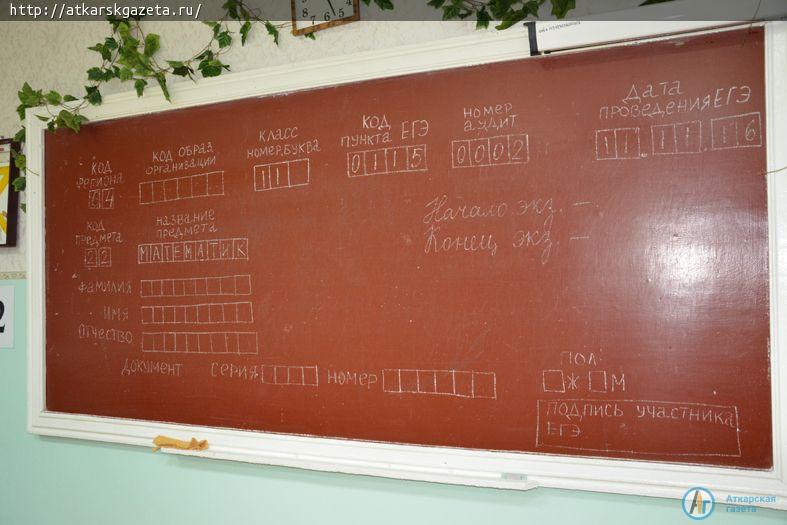 http://atkarskgazeta.ru/
КОД
РЕГИОНА
64
КОД ОБРАЗ.
ОРГАНИЗАЦИИ
КЛАСС
НОМЕР,БУКВА
11
КОД
ПУНКТА ЕГЭ
0115
НОМЕР
АУДИТ
0002
ДАТА
ПРОВЕДЕНИЯ ЕГЭ
11.11.16
КОД
ПРЕДМЕТА
22
НАЗВАНИЕ
ПРЕДМЕТА
МАТЕМАТИК
Начало экз. –
Конец экз. –
ФАМИЛИЯ
ИМЯ
ОТЧЕСТВО
ДОКУМЕНТ СЕРИЯ НОМЕР
ПОЛ:
Ж М
ПОДПИСЬ УЧАСТНИКА
ЕГЭ
2
Аткарская
газета